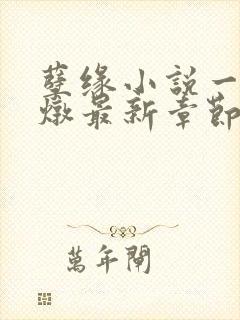 孽缘小説一
燉最新章節
萬年閘